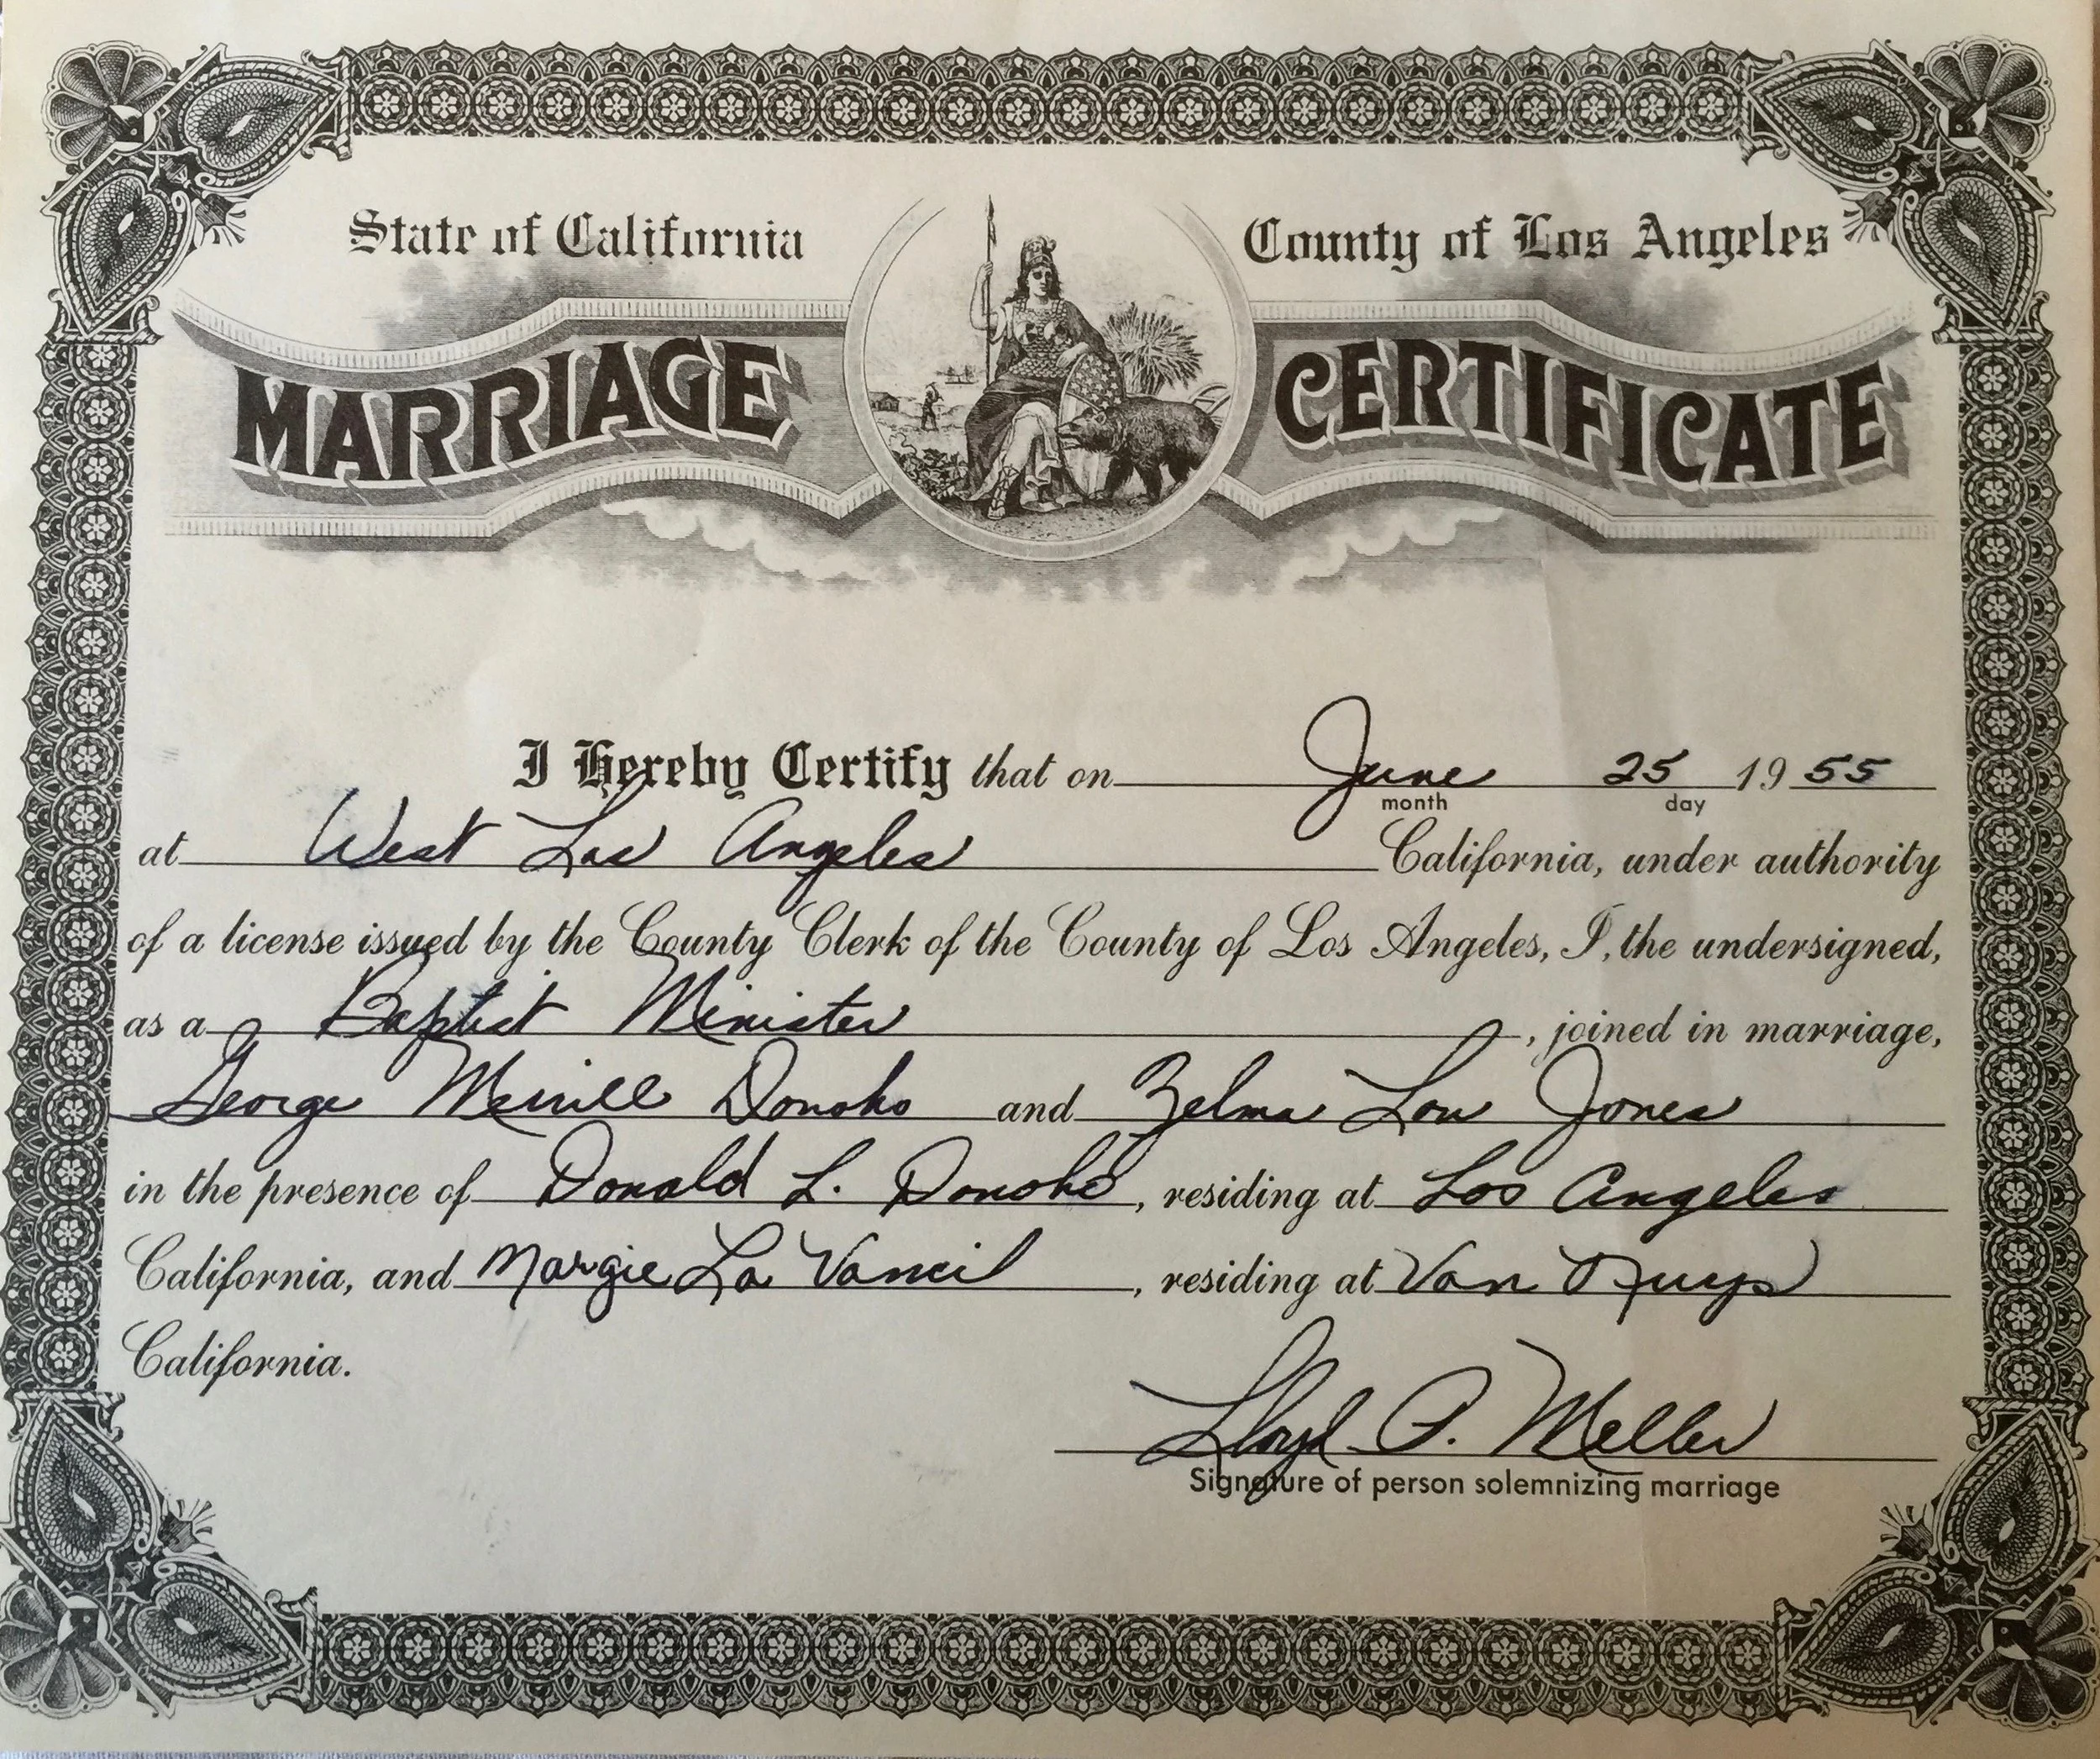 State of California County of Los Angeles
MARRIAGE CERTIFICATE
I Hereby Certify that on June 25 1955
month day
at West Los Angeles California, under authority
of a license issued by the County Clerk of the County of Los Angeles, I, the undersigned,
as a Baptist Minister, joined in marriage,
George Merrill Donoho and Zelma Lou Jones
in the presence of Donald L. Donoho, residing at Los Angeles
California, and Margie La Vancil, residing at Van Nuys
California.
Lloyd P. Meller
Signature of person solemnizing marriage